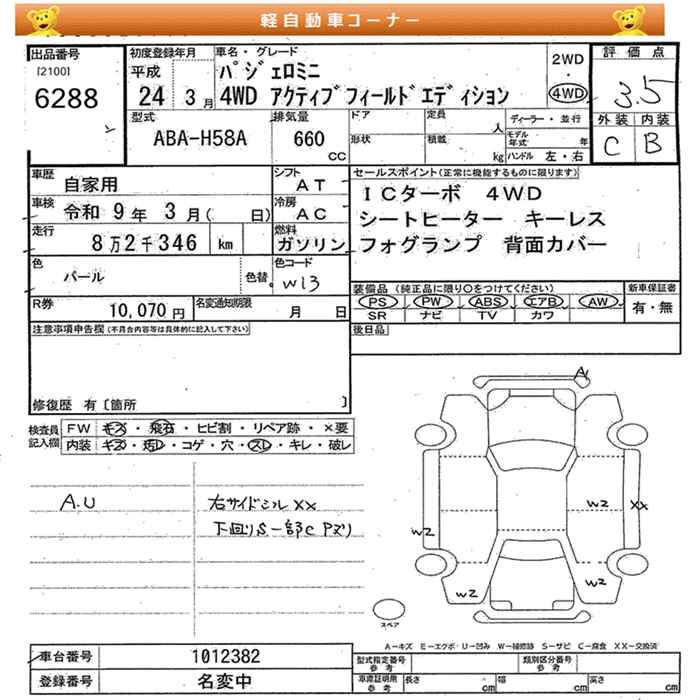 軽自動車コーナー
出品番号
[2100]
6288
初度登録年月
平成
24 3月
車名・グレード
パジェロミニ
4WD アクティブフィールドエディション
2WD
・
4WD
評価点
3.5
外装 内装
C B
型式
ABA-H58A
排気量
660
CC
ドア
形状
定員
人
積載
kg
ディーラー・並行
モデル年式 年
ハンドル 左・右
車歴
自家用
シフト
AT
車検
令和 9年 3月( 日)
冷房
AC
走行
8万2千346 km
燃料
ガソリン
色
パール
色替
色コード
W13
R券
10,070円
名変通知期限
月 日
セールスポイント(正常に機能するものに限ります)
ICターボ 4WD
シートヒーター キーレス
フォグランプ 背面カバー
装備品(純正品に限り○をつけてください)
PS PW ABS エアB AW
SR ナビ TV カワ
新車保証書
有・無
後日品
注意事項申告欄(不具合内容等は具体的に記入して下さい)
修復歴 有〔箇所 〕
検査員記入欄
FW キズ・飛石・ヒビ割・リペア跡・×要
内装 キズ・汚レ・コゲ・穴・スレ・キレ・破レ
A.U
右サイドシルXX
下廻りS一部C Pズリ
A1
W2
XX
W2
W2
W2
スペア
A-キズ E-エクボ U-凹み W-補修跡 S-サビ C-腐食 XX-交換済
車台番号
1012382
登録番号
名変中
型式指定番号
参考
類別区分番号
参考
車庫証明用
参考
長さ cm
幅 cm
高さ cm